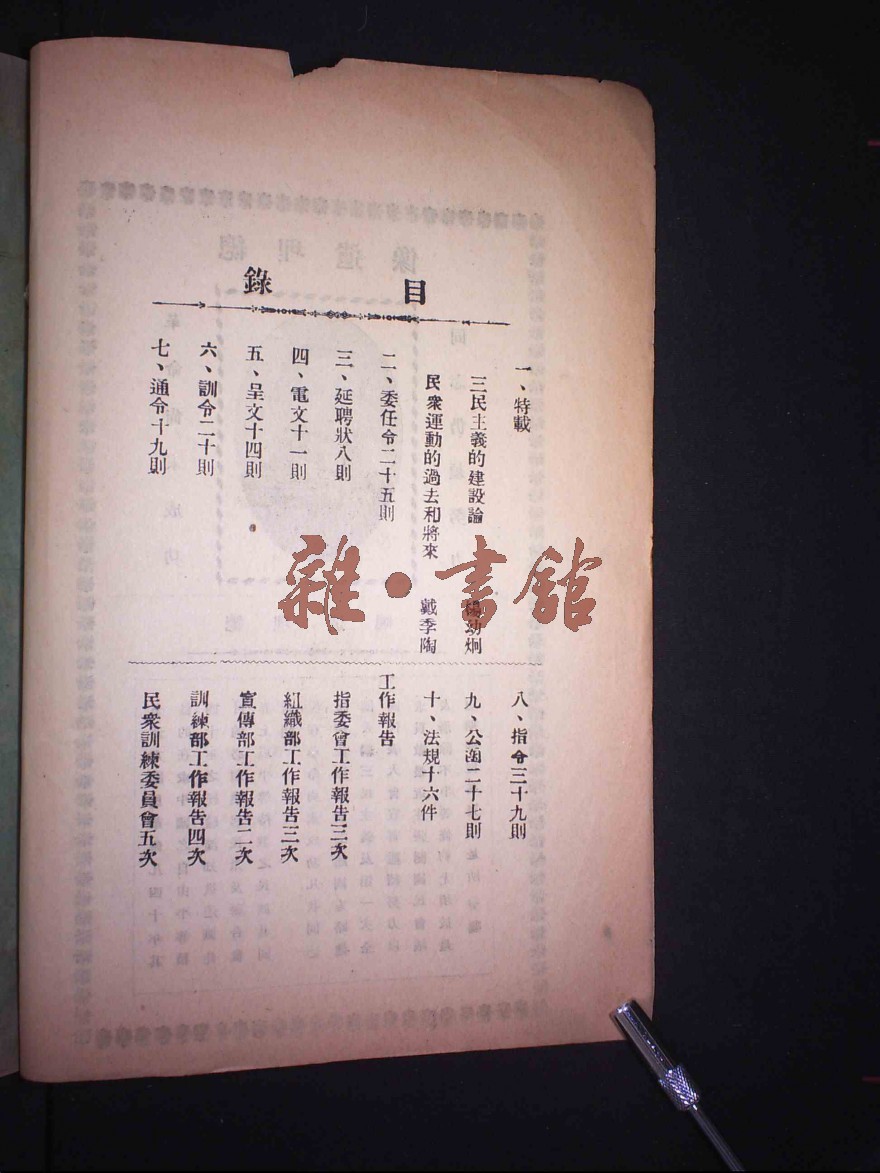 目錄
一、特載
三民主義的建設論 楊幼炯
民衆運動的過去和將來 戴季陶
二、委任令二十五則
三、延聘狀八則
四、電文十一則
五、呈文十四則
六、訓令二十則
七、通令十九則
八、指令三十九則
九、公函二十七則
十、法規十六件
工作報告
指委會工作報告三次
組織部工作報告三次
宣傳部工作報告二次
訓練部工作報告四次
民衆訓練委員會五次
雜·書館